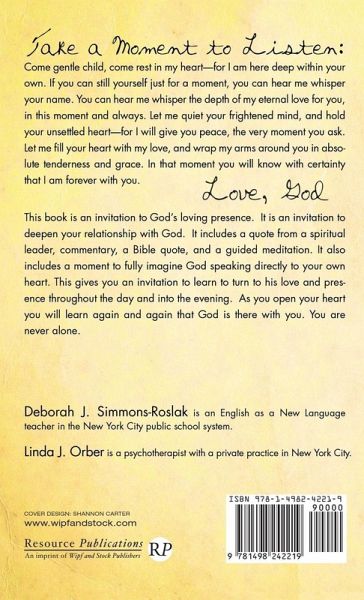 Take a Moment to Listen:
Come gentle child, come rest in my heart—for I am here deep within your
own. If you can still yourself just for a moment, you can hear me whisper
your name. You can hear me whisper the depth of my eternal love for you,
in this moment and always. Let me quiet your frightened mind, and hold
your unsettled heart—for I will give you peace, the very moment you ask.
Let me fill your heart with my love, and wrap my arms around you in abso-
lute tenderness and grace. In that moment you will know with certainty
that I am forever with you.
Love, God
This book is an invitation to God's loving presence. It is an invitation to
deepen your relationship with God. It includes a quote from a spiritual
leader, commentary, a Bible quote, and a guided meditation. It also
includes a moment to fully imagine God speaking directly to your own
heart. This gives you an invitation to learn to turn to his love and pres-
ence throughout the day and into the evening. As you open your heart
you will learn again and again that God is there with you. You are
never alone.
Deborah J. Simmons-Roslak is an English as a New Language
teacher in the New York City public school system.
Linda J. Orber is a psychotherapist with a private practice in New York City.
COVER DESIGN: SHANNON CARTER
www.wipfandstock.com
Resource Publications
An imprint of Wipf and Stock Publishers
RP
ISBN 978-1-4982-4221-9
90000
9 781498 242219